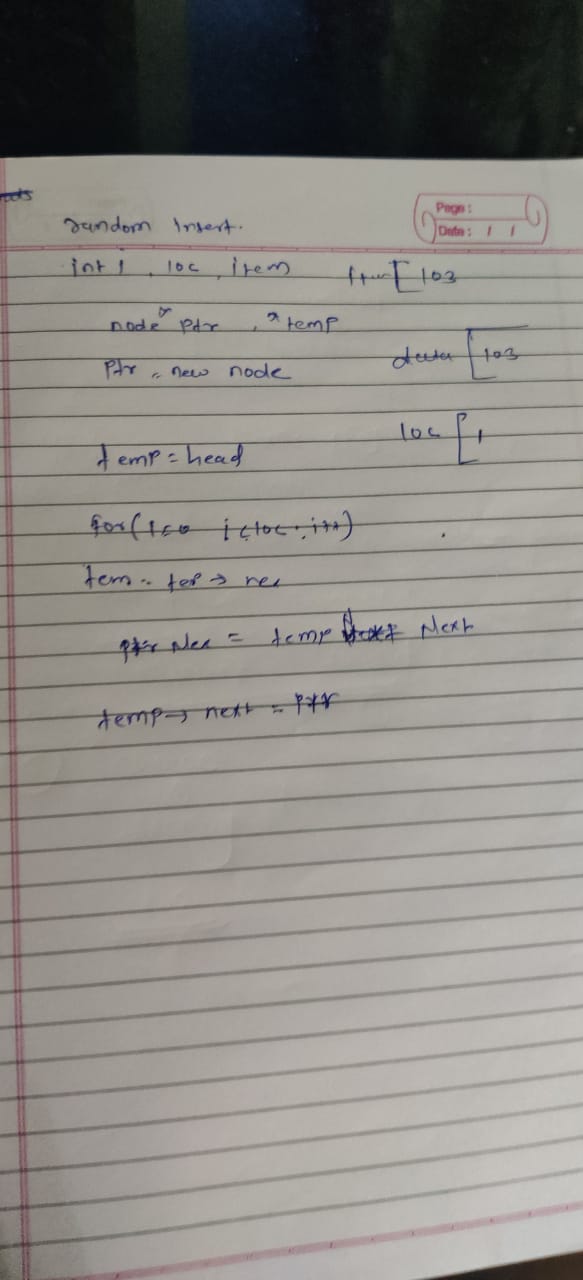 Page:
Date: / /
random Insert.
int i, loc, item [103
node* ptr, *temp
ptr = new node data [103
loc [1
temp = head
for(i=0 i<loc; i++)
tem = tep → nex
ptr Nex = temp Next
temp → next = ptr